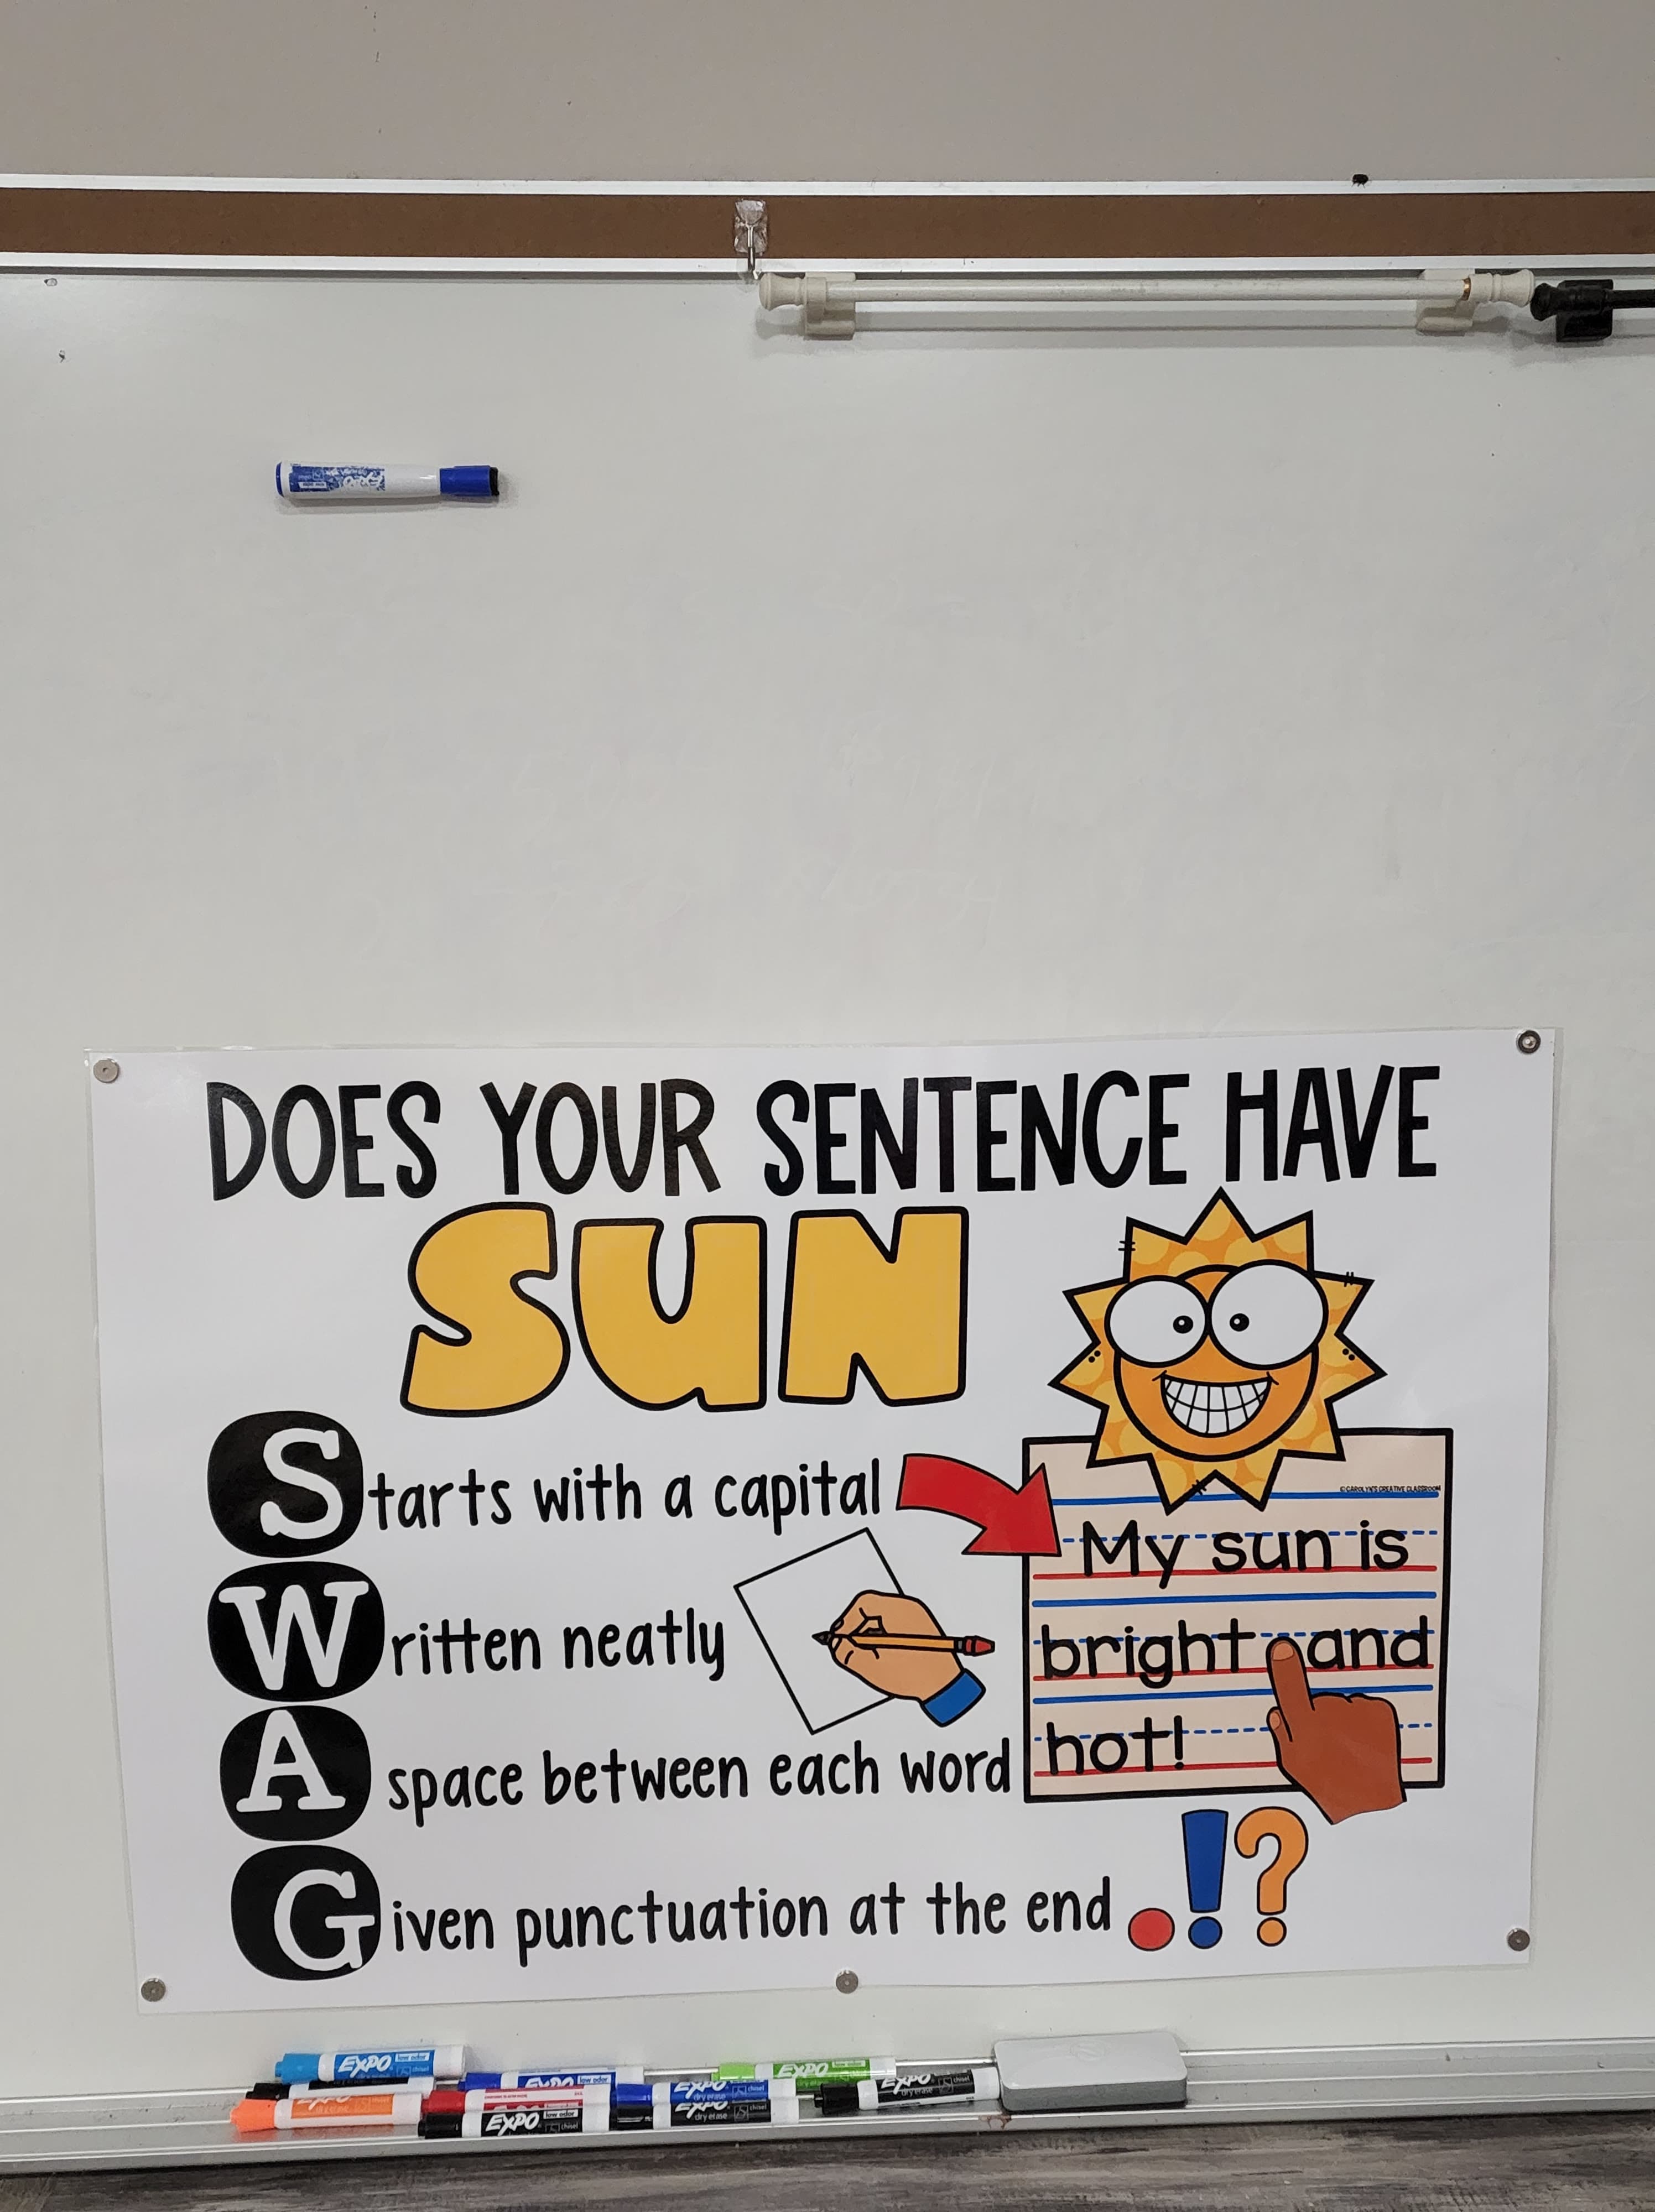 DOES YOUR SENTENCE HAVE
SUN
Starts with a capital
Written neatly
A space between each word
Given punctuation at the end . ! ?
©CAROLYN'S CREATIVE CLASSROOM
My sun is
bright and
hot!
EXPO low odor chisel
low odor
EXPO chisel
EXPO dry erase chisel
EXPO dry erase chisel
EXPO low odor chisel
EXPO dry erase chisel